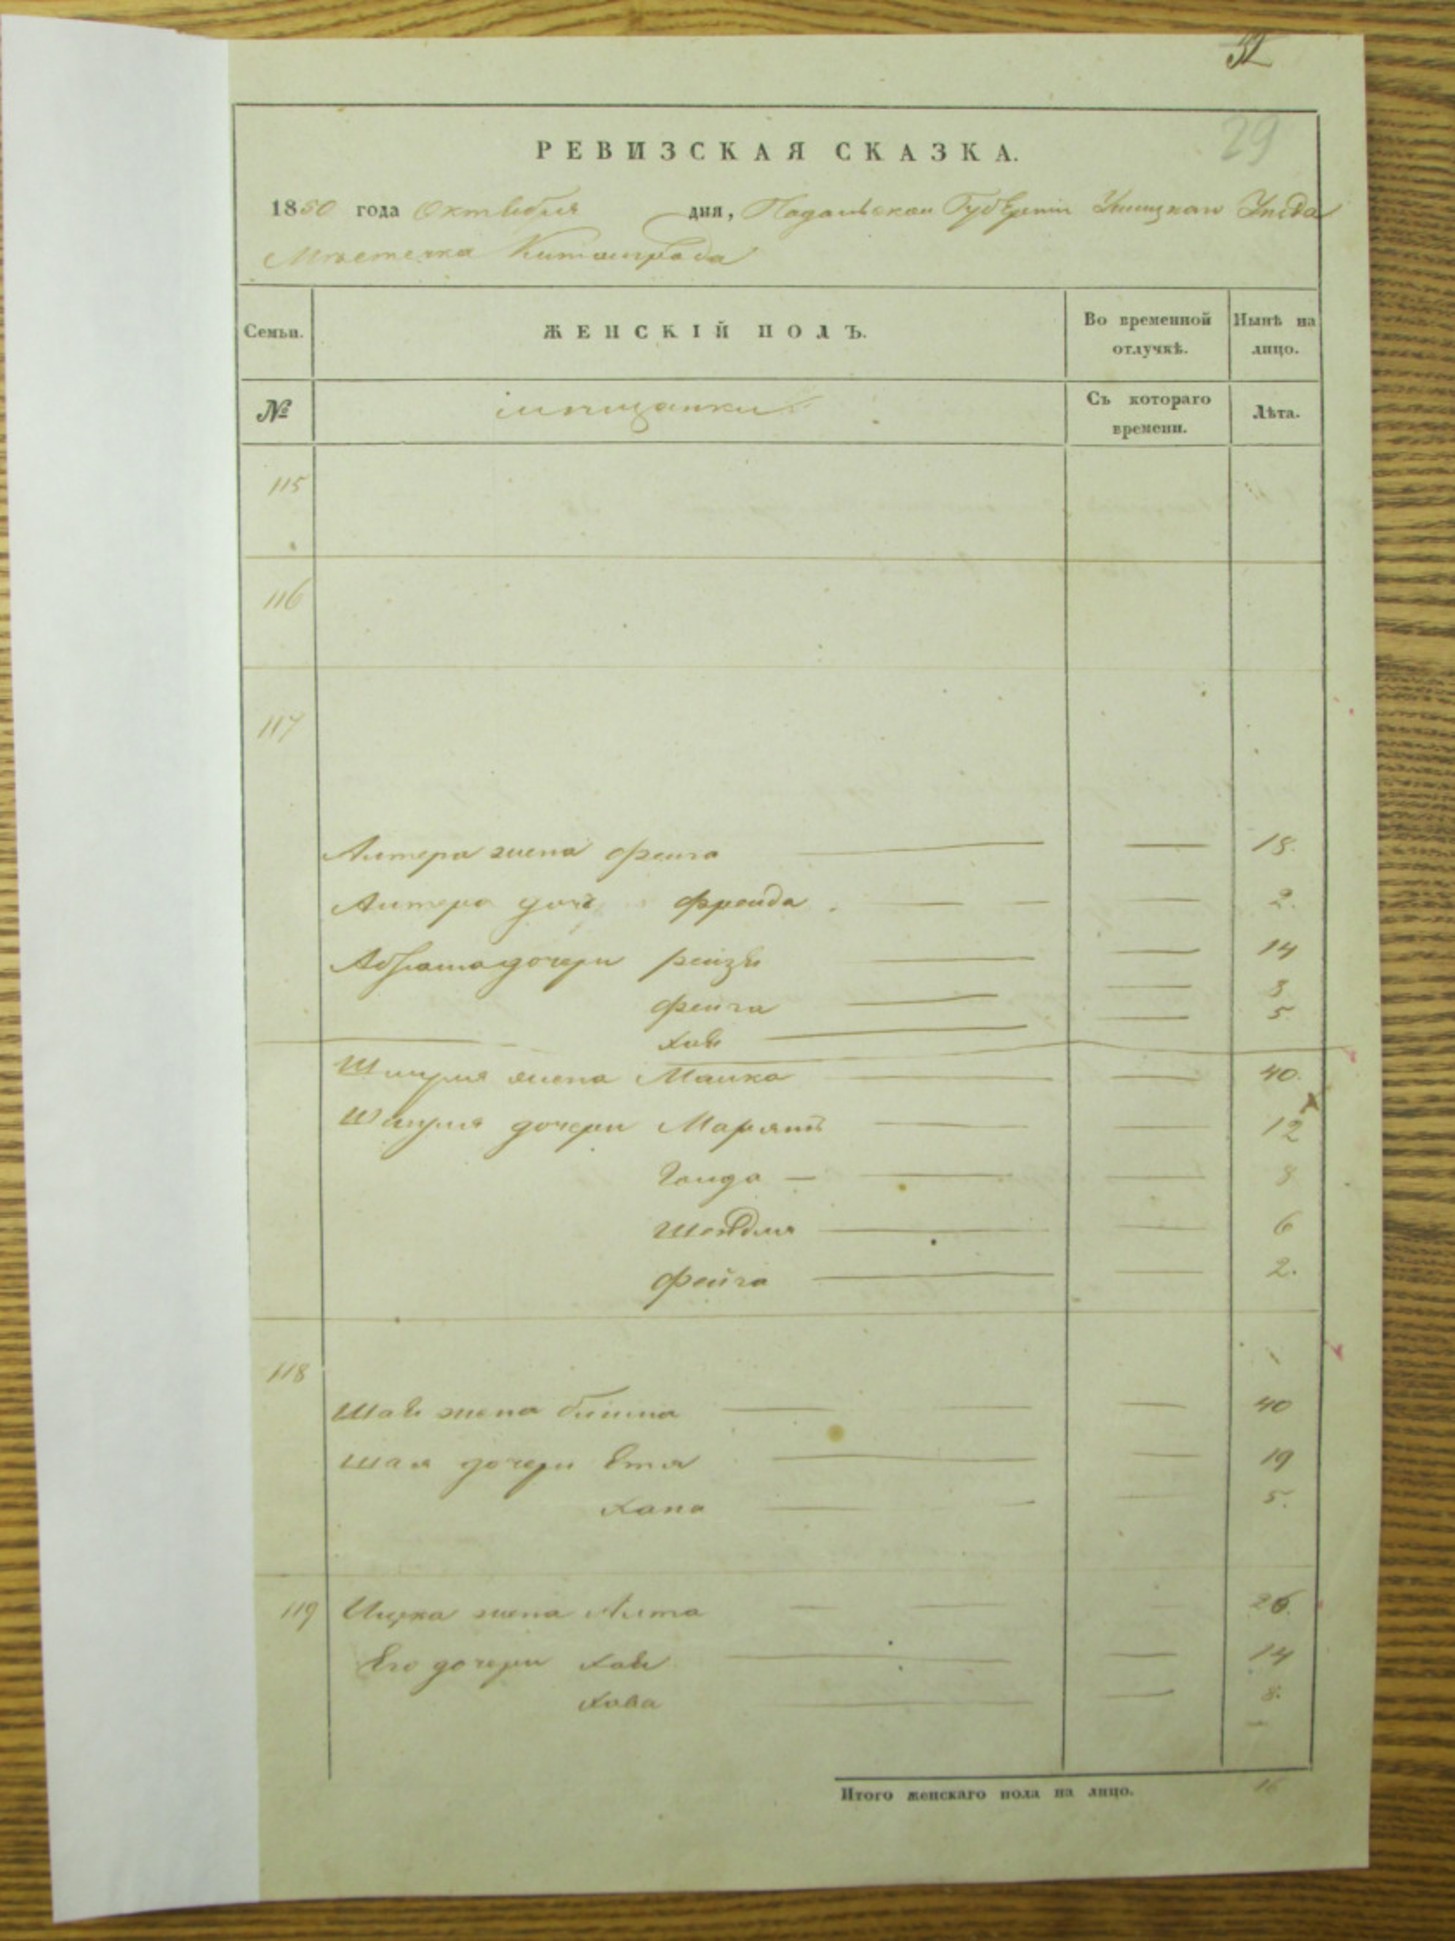 32
29
РЕВИЗСКАЯ СКАЗКА.
1850 года Октября дня, Подольской Губерніи Ушицкаго Уѣзда
Мѣстечка Китайгрода
Семьи. ЖЕНСКІЙ ПОЛЪ. Во временной отлучкѣ. Нынѣ на лицо.
№ мѣщанки Съ котораго времени. Лѣта.
115
116
117
жена Фейга — — 18.
дочь Фрейда — — 2.
Абрама дочери Рейзя — — 14
Фейга — — 8
Хая — — 5
Шмуля жена Малка — — 40.
Шмуля дочери Маріямъ — — 12
Голда — — 8
Шейдля — — 6
Фейга — — 2.
118
Шаи жена — — 40
Шая дочери Етя — — 19
Хана — — 5.
119 Ицка жена — — 26.
Его дочери Хая — — 14
Хава — — 8.
Итого женскаго пола на лицо. 16